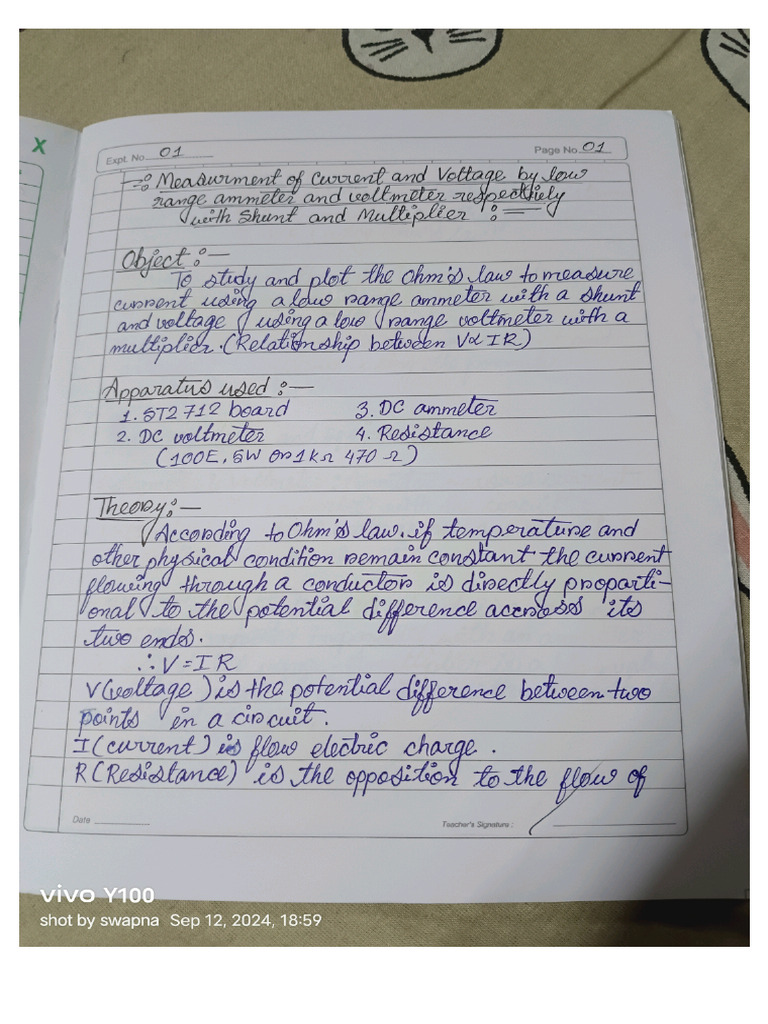 X
Expt. No. 01
Page No. 01
-:: Measurment of Current and Voltage by low
range ammeter and voltmeter respectively
with Shunt and Multiplier :-
Object :-
To study and plot the Ohm's law to measure
current using a low range ammeter with a shunt
and voltage using a low range voltmeter with a
multiplier. (Relationship between V∝ IR)
Apparatus used :-
1. ST2712 board 3. DC ammeter
2. DC voltmeter 4. Resistance
(100E, 5W or 1kΩ 470 Ω)
Theory :-
According to Ohm's law. if temperature and
other physical condition remain constant the current
flowing through a conductor is directly proparti-
onal to the potential difference accross its
two ends.
∴ V = I R
V (voltage) is the potential difference between two
points in a circuit.
I (current) is flow electric charge.
R (Resistance) is the opposition to the flow of
Date
Teacher's Signature :
vivo Y100
shot by swapna Sep 12, 2024, 18:59